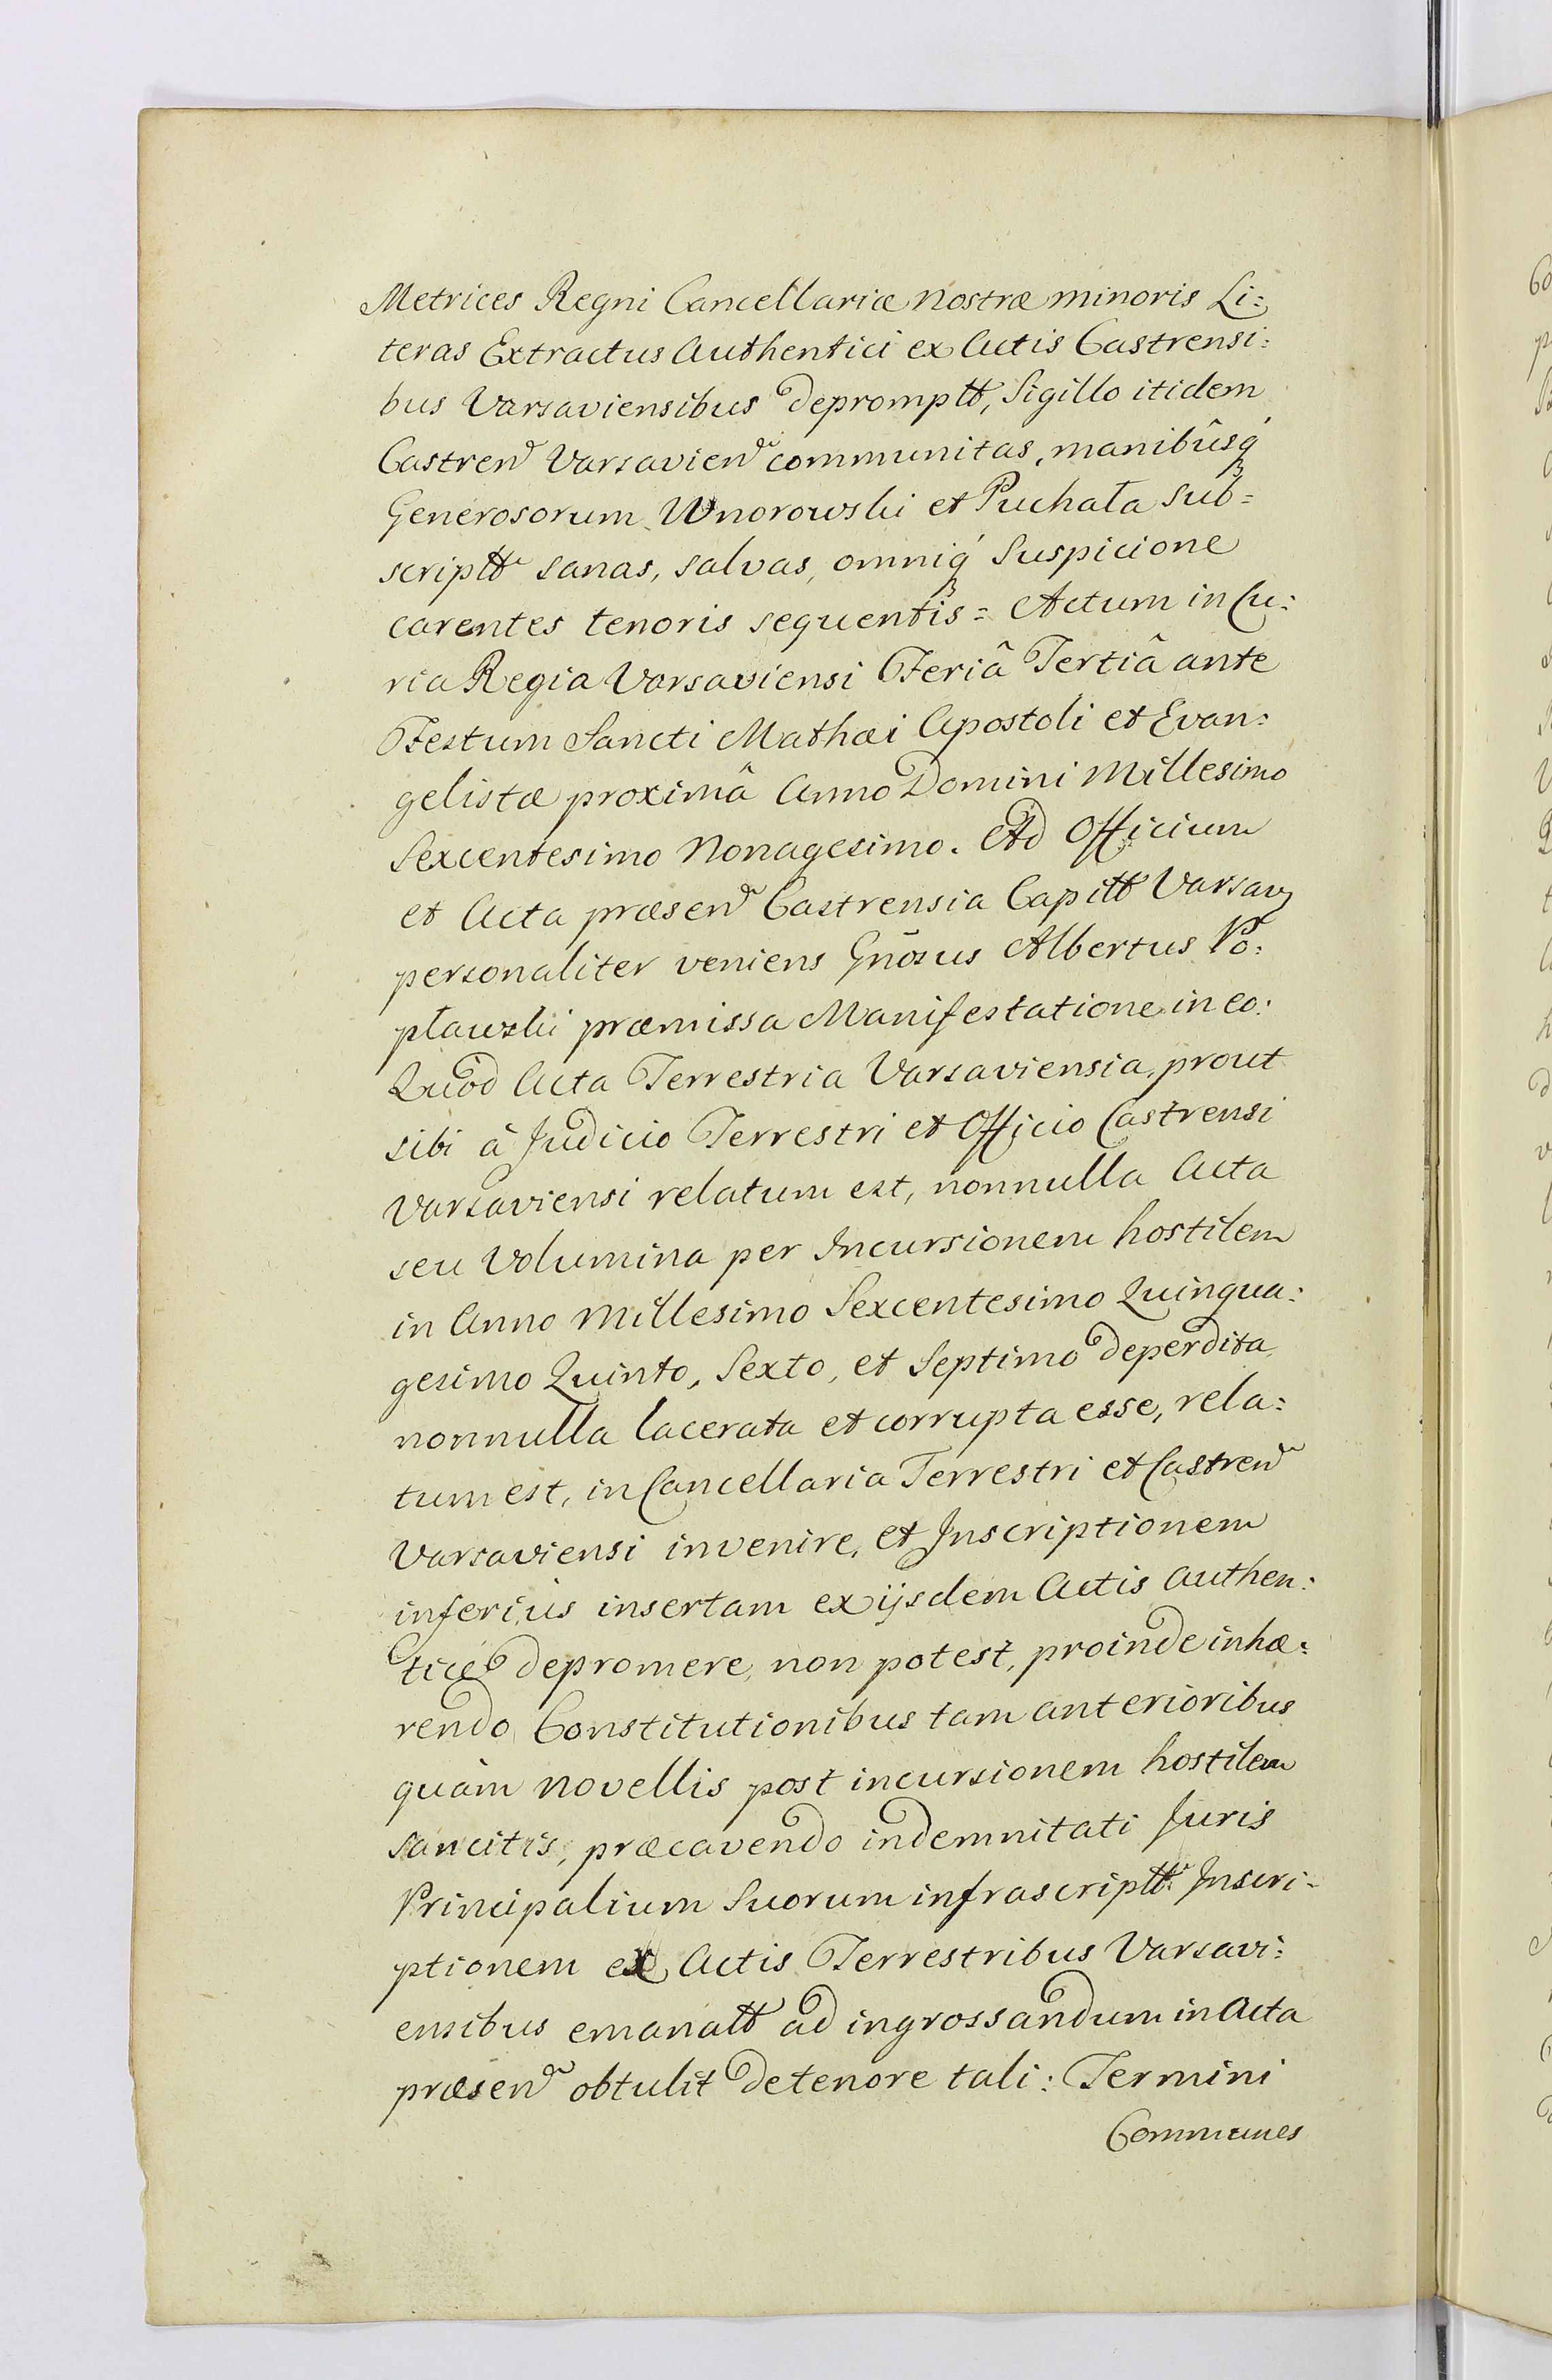 Metrices Regni Cancellariæ nostræ minoris Li:
teras Extractus Authentici ex Actis Castrensi:
bus Varsaviensibus depromptt, Sigillo itidem
Castren Varsavien communitas, manibûsq́
Generosorum Wnorowski et Puchała sub=
scriptt sanas, salvas, omniq́ Suspicione
carentes tenoris sequentis = Actum in Cu:
ria Regia Varsaviensi Feriâ Tertiâ ante
Festum Sancti Mathæi Apostoli et Evan:
gelistæ proximâ Anno Domini Millesimo
Sexcentesimo Nonagesimo. Ad Officium
et Acta præsen Castrensia Capitt Varsav
personaliter veniens Gnõsus Albertus Po:
pławski præmissa Manifestatione in eo:
Quòd Acta Terrestria Varsaviensia, prout
sibi â Judicio Terrestri et Officio Castrensi
Varsaviensi relatum est, nonnulla Acta
seu Volumina per Incursionem hostilem
in Anno Millesimo Sexcentesimo Quinqua:
gesimo Quinto, Sexto, et Septimo deperdita,
nonnulla lacerata et corrupta esse, rela:
tum est, in Cancellaria Terrestri et Castren
Varsaviensi invenire, et Inscriptionem
inferiùs insertam ex ijsdem Actis Authen:
ticè depromere, non potest, proinde inhæ:
rendo Constitutionibus tam anterioribus
quàm novellis post incursionem hostilem
sancitis, præcavendo indemnitati Juris
Principalium Suorum infrascriptt Inscri-
ptionem ex Actis Terrestribus Varsavi:
ensibus emanatt ad ingrossandum in Acta
præsen obtulit de tenore tali: Termini
Communes